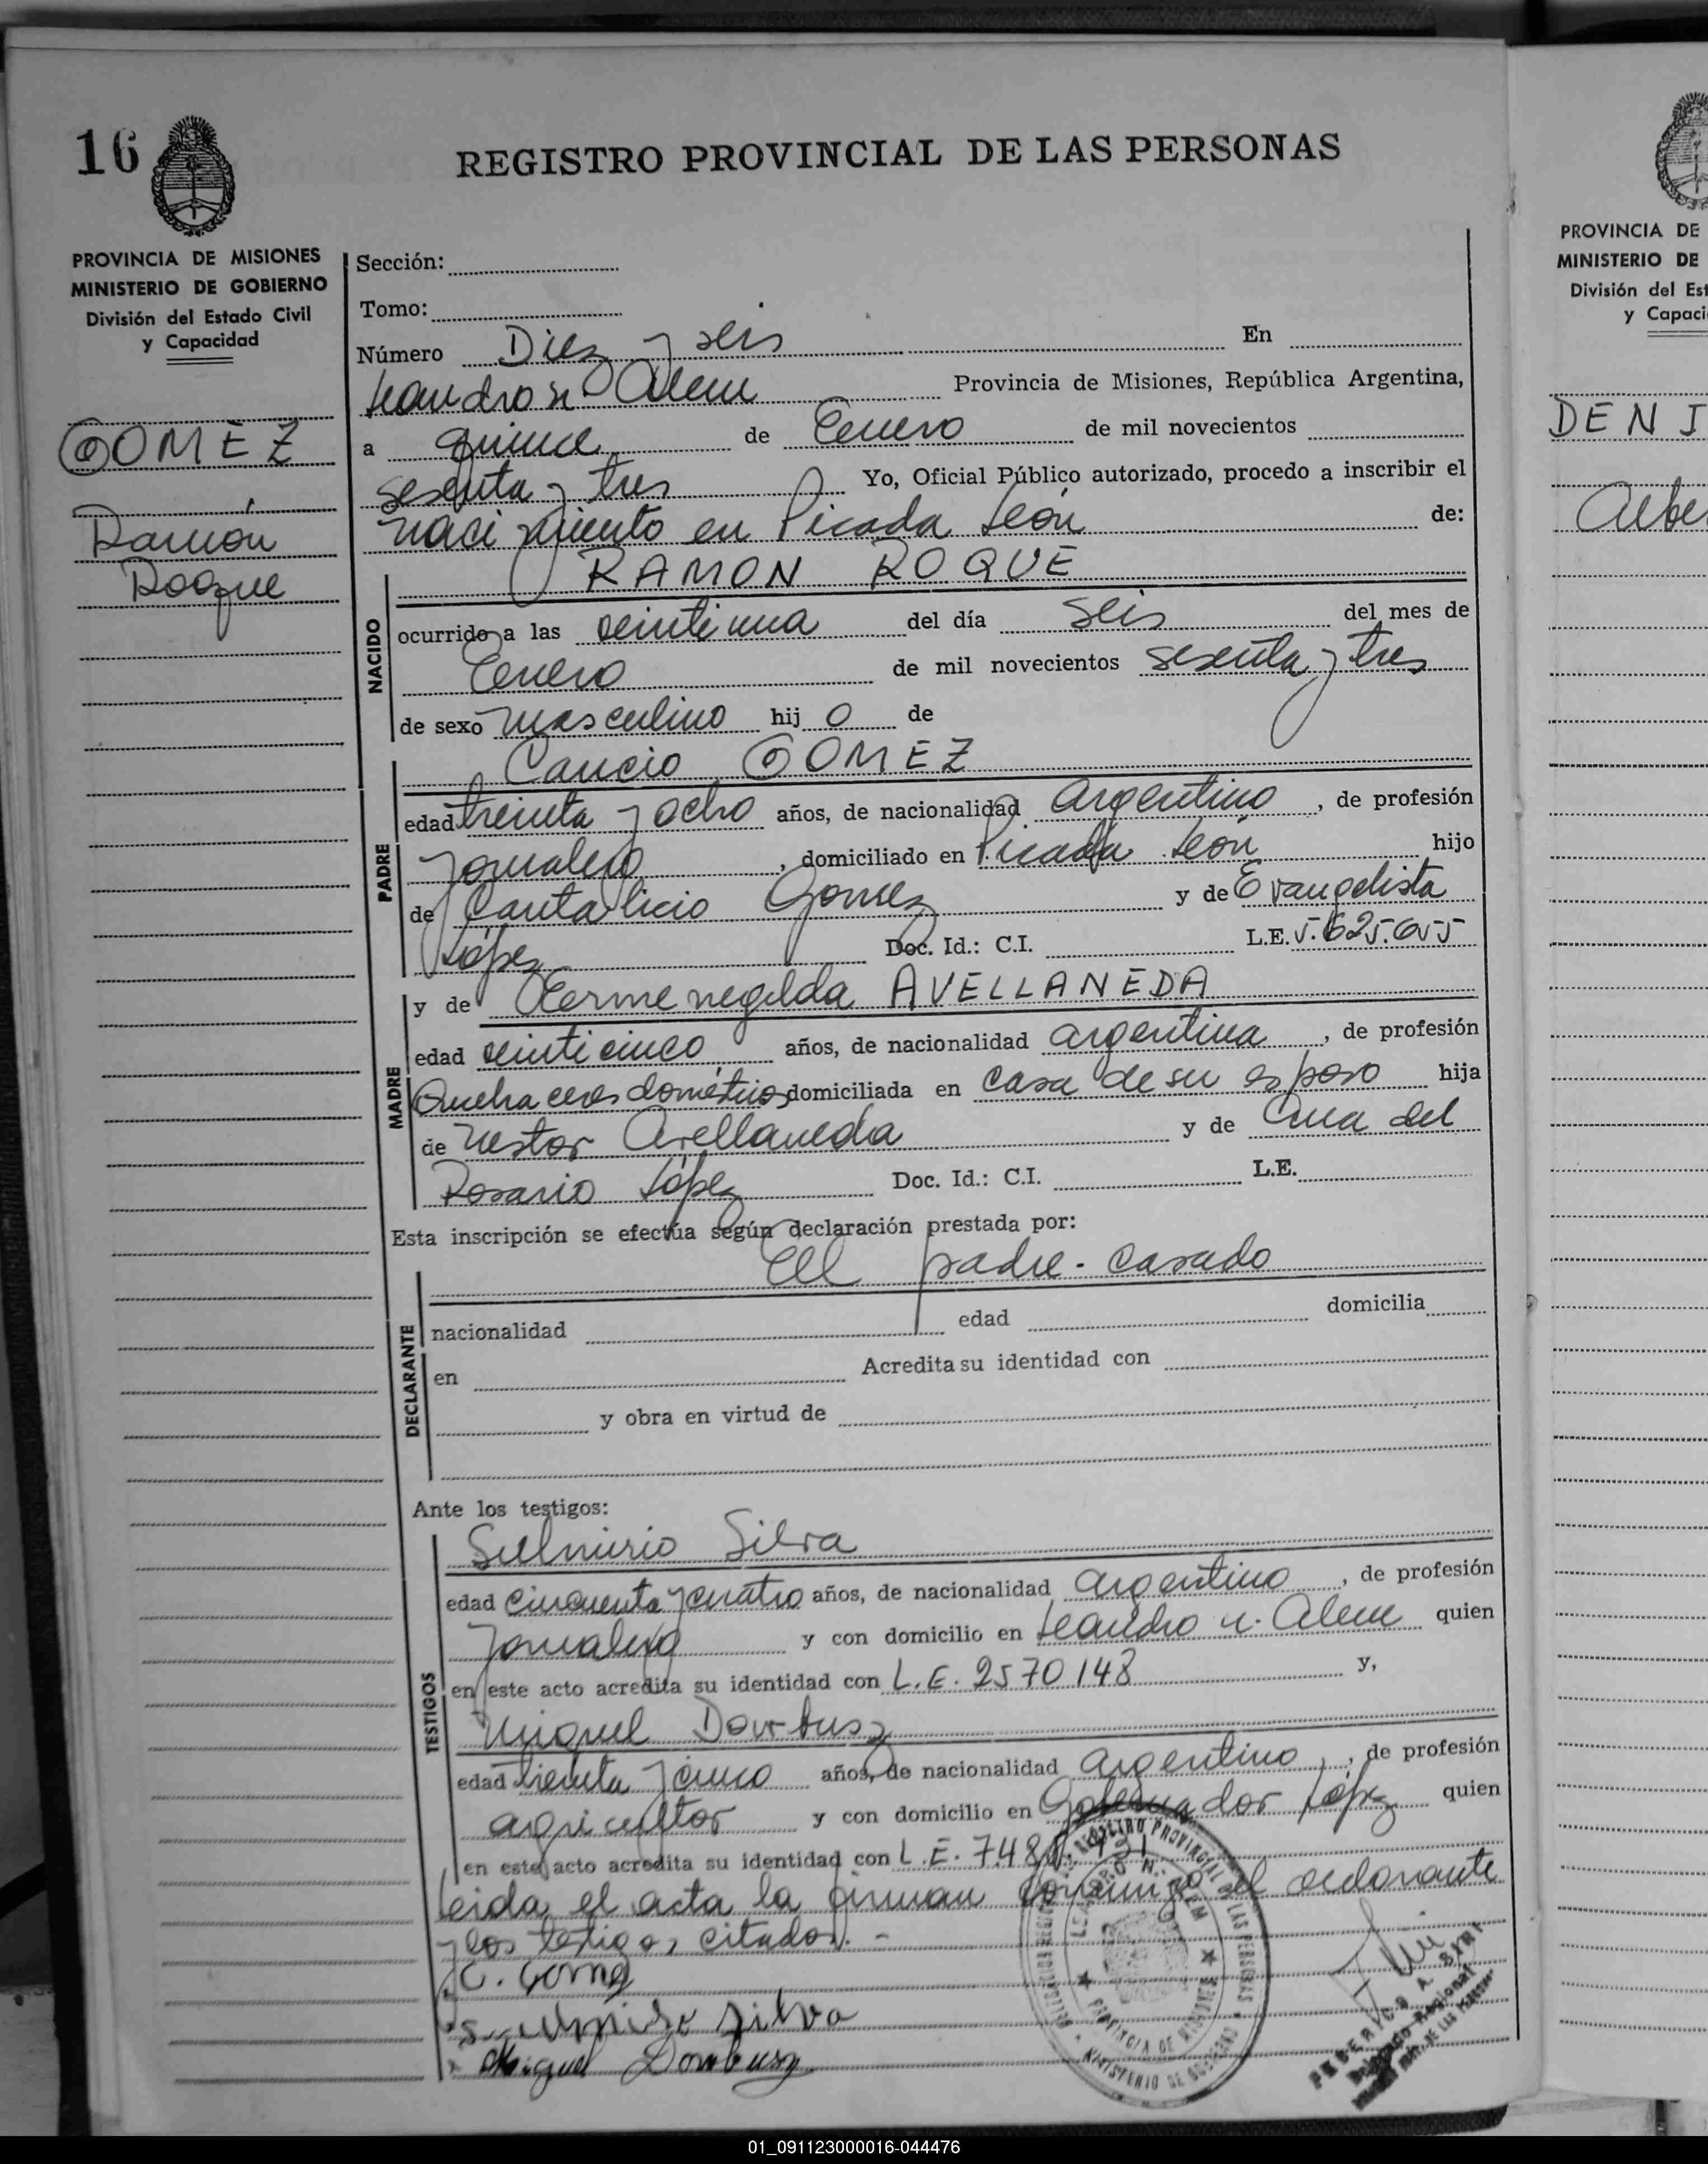 16
REGISTRO PROVINCIAL DE LAS PERSONAS
PROVINCIA DE MISIONES
MINISTERIO DE GOBIERNO
División del Estado Civil
y Capacidad
GOMEZ
Ramón
Roque
Sección:
Tomo:
Número Diez y seis En
Leandro N. Alem Provincia de Misiones, República Argentina,
a quince de Enero de mil novecientos
sesenta y tres Yo, Oficial Público autorizado, procedo a inscribir el
nacimiento en Picada León de:
RAMON ROQUE
NACIDO
ocurrido a las veintiuna del día seis del mes de
Enero de mil novecientos sesenta y tres
de sexo masculino hijo de
Cancio GOMEZ
PADRE
edad treinta y ocho años, de nacionalidad argentino, de profesión
Jornalero, domiciliado en Picada León hijo
de Cantalicio Gomez y de Evangelista
López Doc. Id.: C.I. L.E. 5.625.655
y de Hermenegilda AVELLANEDA
MADRE
edad veinticinco años, de nacionalidad argentina, de profesión
Quehaceres domésticos domiciliada en casa de su esposo hija
de Nestor Avellaneda y de Ana del
Rosario López Doc. Id.: C.I. L.E.
Esta inscripción se efectúa según declaración prestada por:
El padre - casado
DECLARANTE
nacionalidad edad domicilia
en Acredita su identidad con
y obra en virtud de
Ante los testigos:
Silva
TESTIGOS
edad cincuenta y cuatro años, de nacionalidad argentino, de profesión
Jornalero y con domicilio en Leandro N. Alem quien
en este acto acredita su identidad con L.E. 2570148 y,
Miguel Dornbusz
edad treinta y cinco años, de nacionalidad argentino, de profesión
agricultor y con domicilio en Gobernador López quien
en este acto acredita su identidad con L.E. 7.48
leida el acta la firman conmigo el declarante
y los testigos citados. -
C. Gomez
Silva
Miguel Dornbusz
REGISTRO PROVINCIAL DE LAS PERSONAS
LEANDRO N. ALEM
PROVINCIA DE MISIONES
MINISTERIO DE GOBIERNO
Delegado Regional
PROVINCIA DE
MINISTERIO DE
División del Est
y Capaci
DEN
Albe
01_091123000016-044476